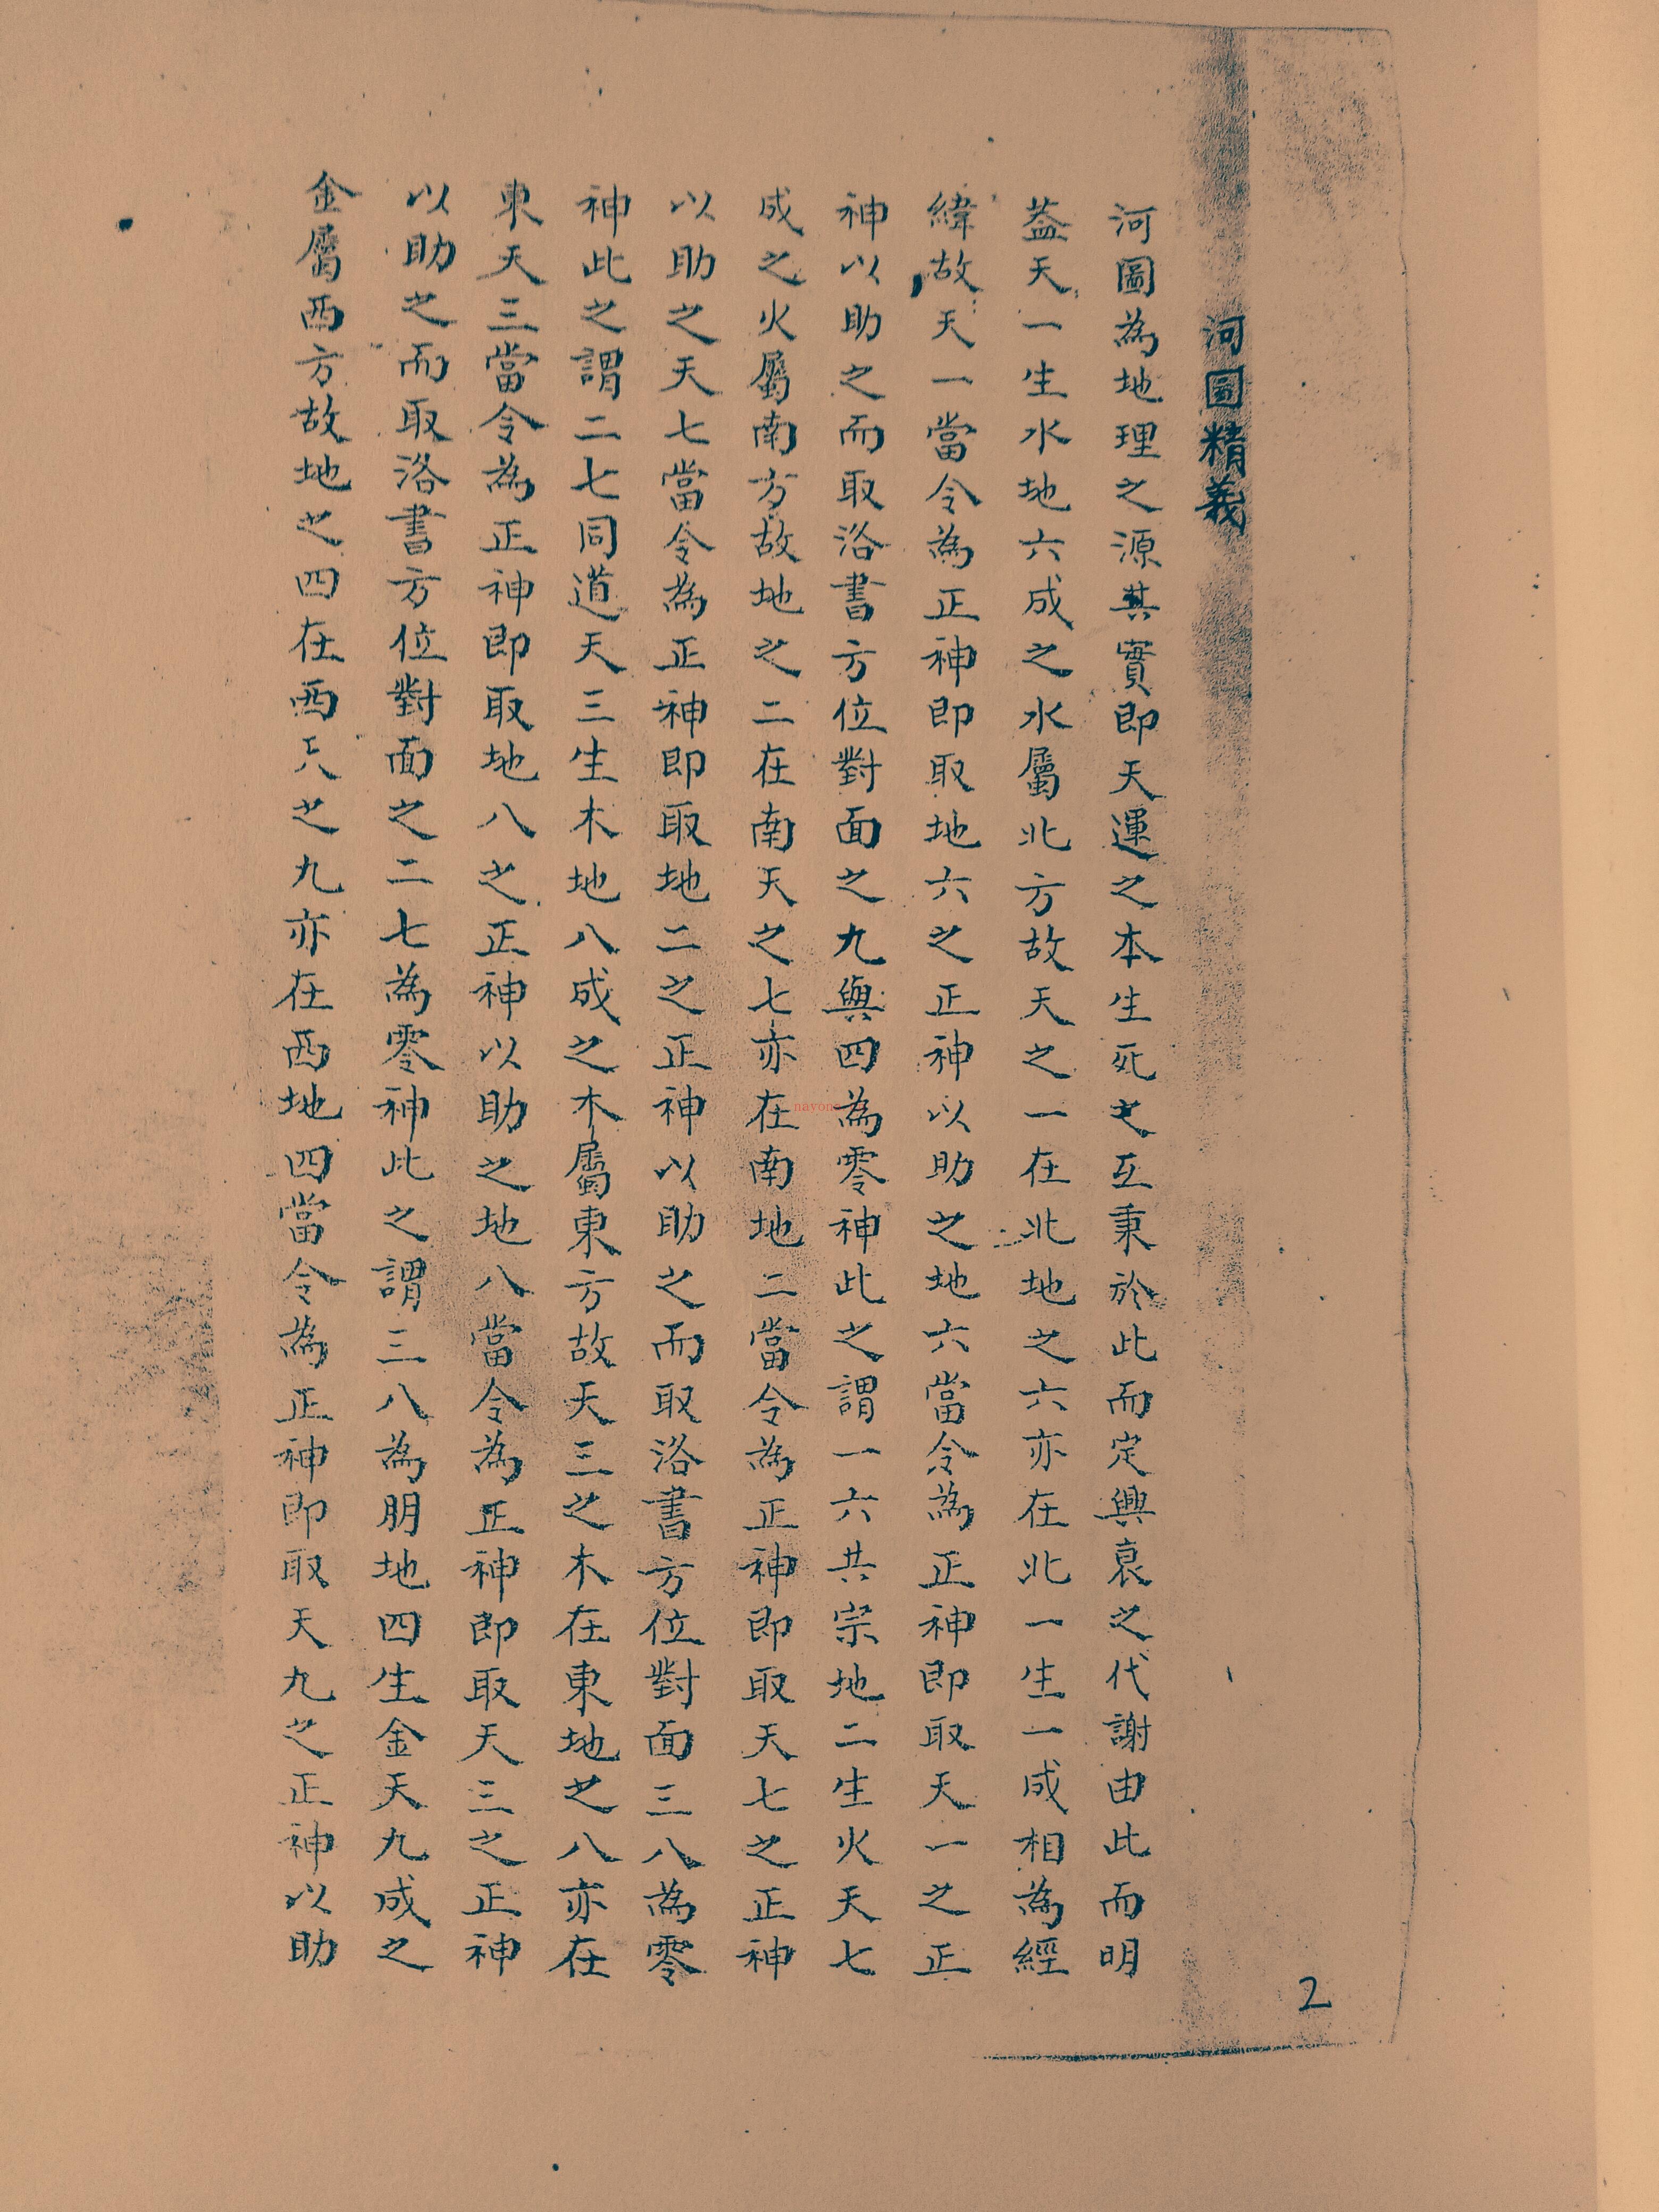 河圖精義
河圖為地理之源其實即天運之本生死之互秉於此而定興衰之代謝由此而明
蓋天一生水地六成之水屬北方故天之一在北地之六亦在北一生一成相為經
緯故天一當令為正神即取地六之正神以助之地六當令為正神即取天一之正
神以助之而取洛書方位對面之九與四為零神此之謂一六共宗地二生火天七
成之火屬南方故地之二在南天之七亦在南地二當令為正神即取天七之正神
以助之天七當令為正神即取地二之正神以助之而取洛書方位對面三八為零
神此之謂二七同道天三生木地八成之木屬東方故天三之木在東地之八亦在
東天三當令為正神即取地八之正神以助之地八當令為正神即取天三之正神
以助之而取洛書方位對面之二七為零神此之謂三八為朋地四生金天九成之
金屬西方故地之四在西之九亦在西地四當令為正神即取天九之正神以助
2